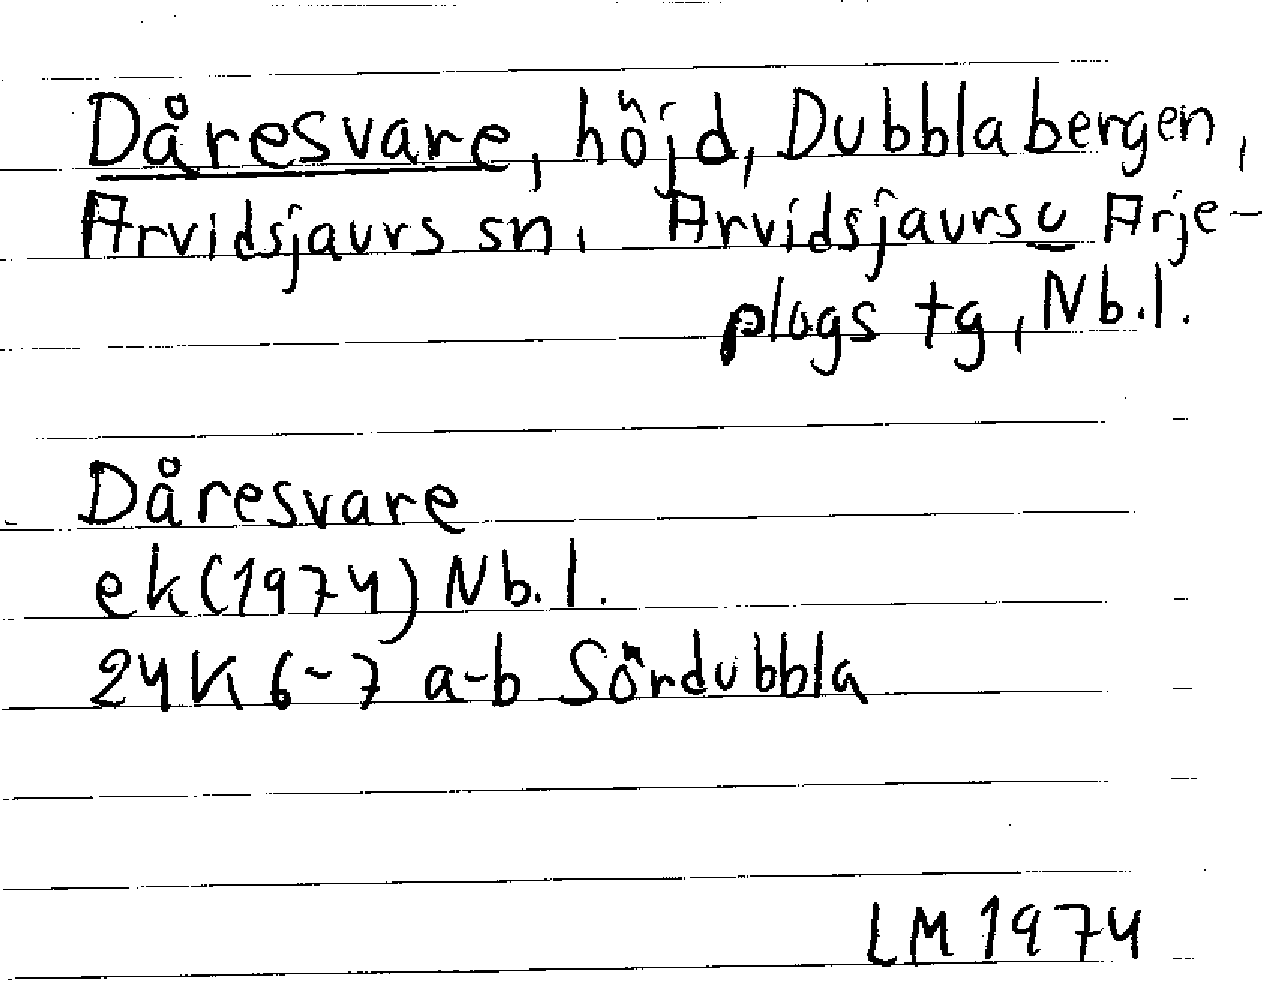 Dåresvare, höjd, Dubblabergen,
Arvidsjaurs sn, Arvidsjaurs o Arje-
plogs tg, Nb.l.
Dåresvare
ek(1974) Nb.l.
24K 6-7 a-b Sördubbla
LM 1974